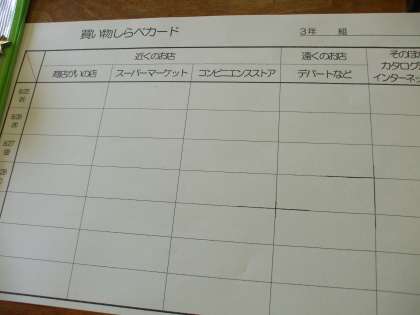 買い物しらべカード
3年 組
近くのお店
遠くのお店
そのほか
商店がいの店
スーパーマーケット
コンビニエンスストア
デパートなど
カタログ
インターネッ